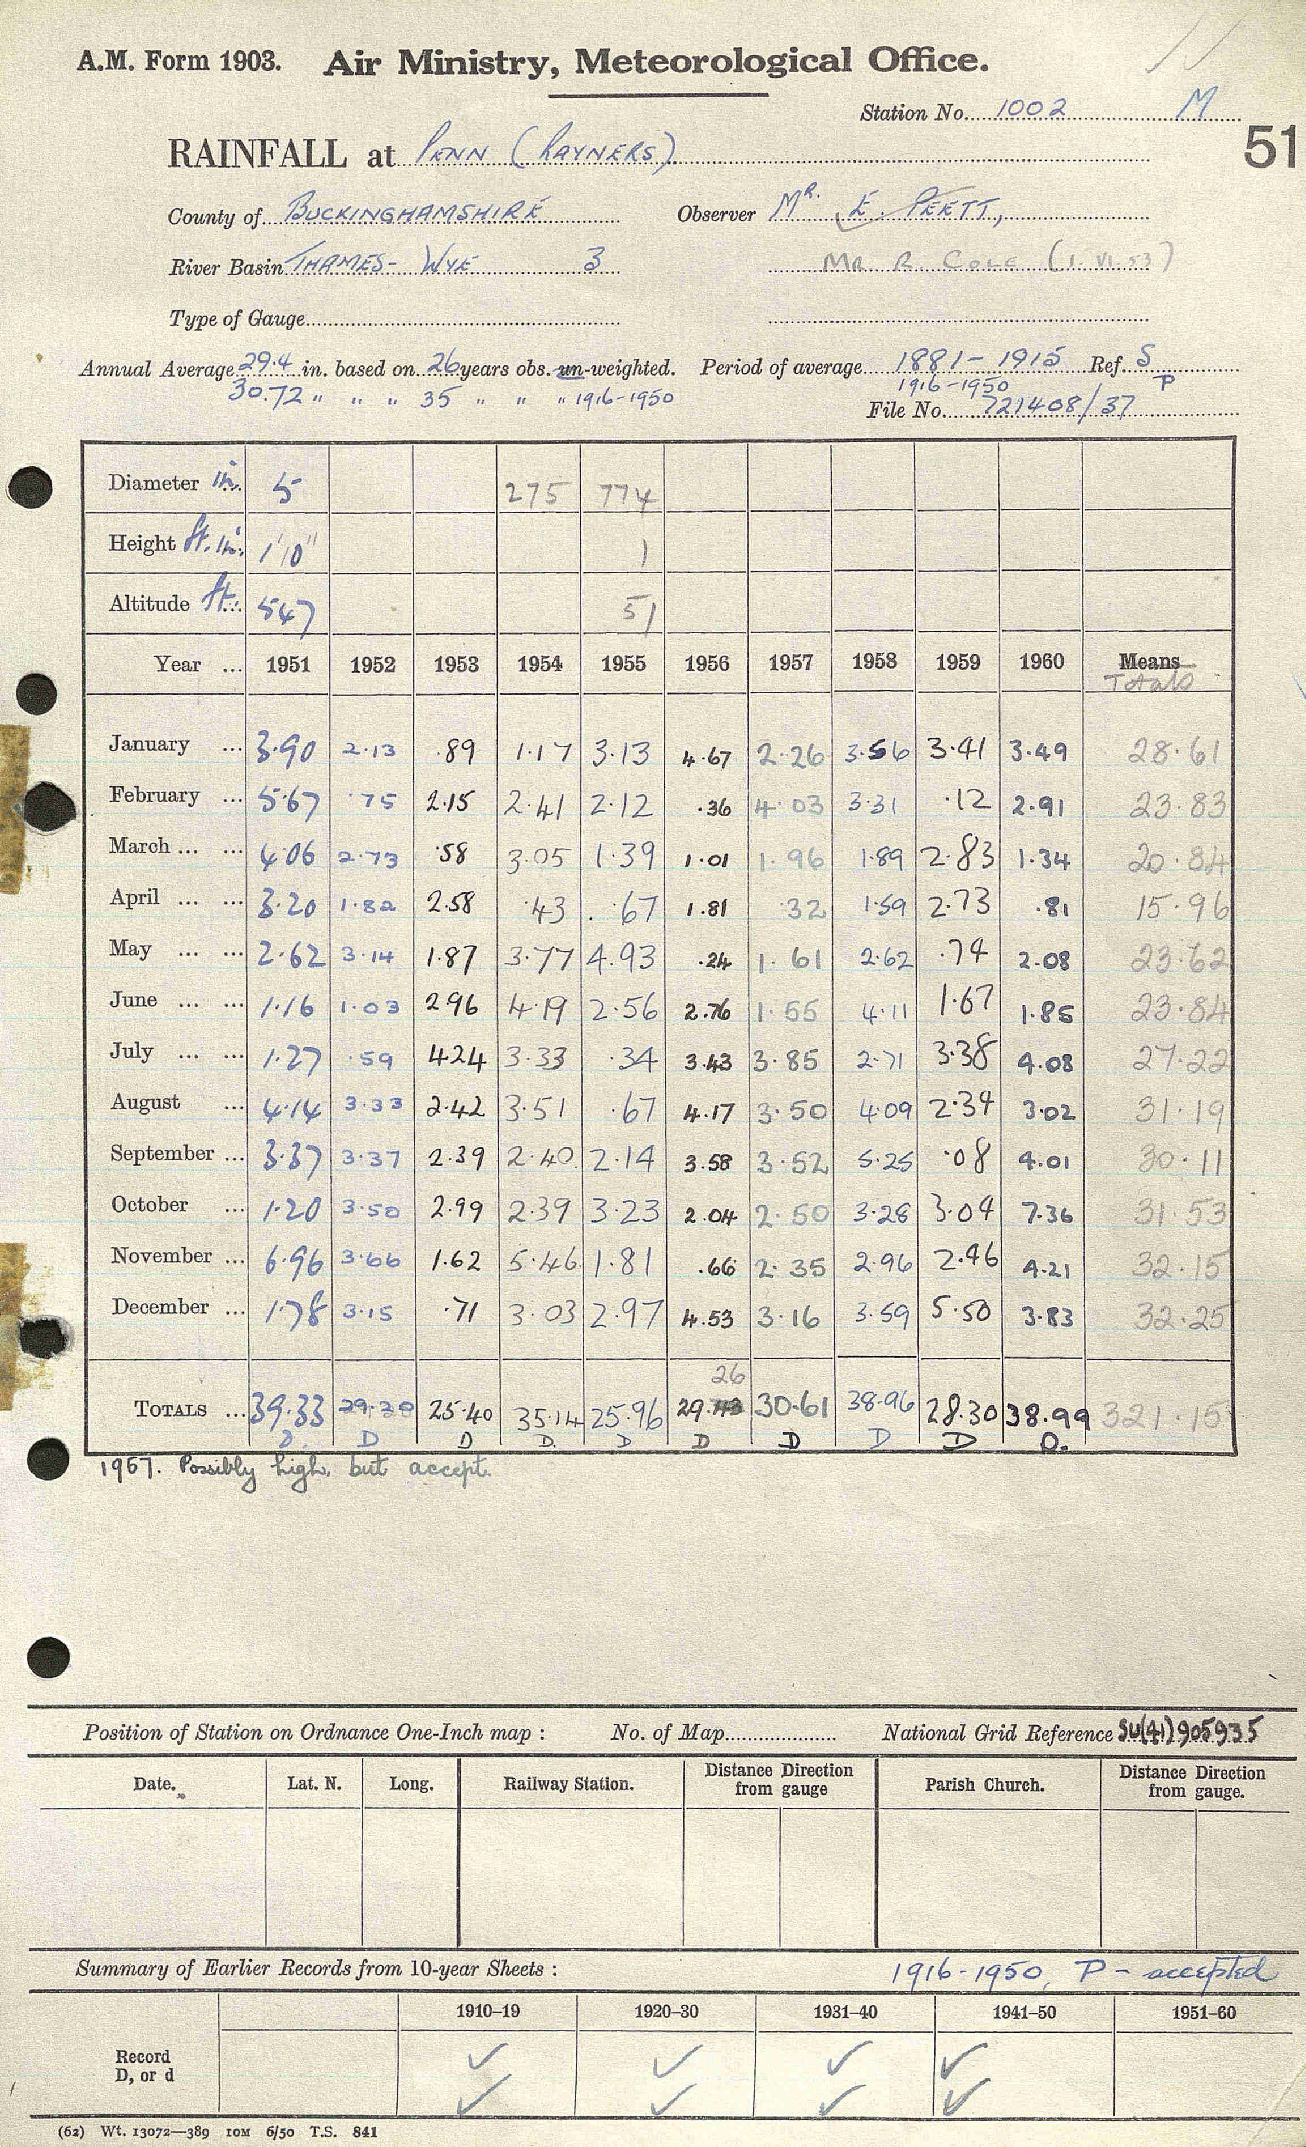 A.M. Form 1903. Air Ministry, Meteorological Office.
Station No. 1002 M
51
RAINFALL at PENN (RAYNERS)
County of BUCKINGHAMSHIRE Observer MR. E. PEETT,
River Basin THAMES - WYE 3 MR R. COLE (1.VI.53)
Type of Gauge
Annual Average 29.4 in. based on 26 years obs. un-weighted. Period of average 1881-1915 Ref. S
30.72 " " " 35 " " " 1916-1950 1916-1950 P
File No. 721408/37
Diameter in. 5 275 774
Height ft. in. 1'10" 1
Altitude ft. 547 51
Year ... 1951 1952 1953 1954 1955 1956 1957 1958 1959 1960 Means
Totals
January ... 3.90 2.13 .89 1.17 3.13 4.67 2.26 3.56 3.41 3.49 28.61
February ... 5.67 .75 2.15 2.41 2.12 .36 4.03 3.31 .12 2.91 23.83
March ... ... 4.06 2.73 .58 3.05 1.39 1.01 1.96 1.89 2.83 1.34 20.84
April ... ... 3.20 1.82 2.58 .43 .67 1.81 .32 1.59 2.73 .81 15.96
May ... ... 2.62 3.14 1.87 3.77 4.93 .24 1.61 2.62 .74 2.08 23.62
June ... ... 1.16 1.03 2.96 4.19 2.56 2.76 1.55 4.11 1.67 1.85 23.84
July ... ... 1.27 .59 4.24 3.33 .34 3.43 3.85 2.71 3.38 4.08 27.22
August ... 4.14 3.33 2.42 3.51 .67 4.17 3.50 4.09 2.34 3.02 31.19
September ... 3.37 3.37 2.39 2.40 2.14 3.58 3.52 5.25 .08 4.01 30.11
October ... 1.20 3.50 2.99 2.39 3.23 2.04 2.50 3.28 3.04 7.36 31.53
November ... 6.96 3.66 1.62 5.46 1.81 .66 2.35 2.96 2.46 4.21 32.15
December ... 1.78 3.15 .71 3.03 2.97 4.53 3.16 3.59 5.50 3.83 32.25
26
TOTALS ... 39.33 29.20 25.40 35.14 25.96 29. 30.61 38.96 28.30 38.99 321.15
D. D D D. D D D D D D.
1957. Possibly high, but accept.
Position of Station on Ordnance One-Inch map : No. of Map National Grid Reference SU(41)905935
Date. Lat. N. Long. Railway Station. Distance Direction from gauge Parish Church. Distance Direction from gauge.
Summary of Earlier Records from 10-year Sheets : 1916-1950, P - accepted
1910–19 1920–30 1931–40 1941–50 1951–60
Record ✓ ✓ ✓ ✓
D, or d ✓ ✓ ✓ ✓
(62) Wt. 13072—389 10M 6/50 T.S. 841